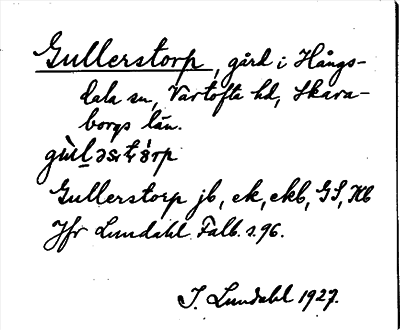 Gullerstorp, gård i Hångs-
dala sn, Vartofta hd, Skara-
borgs län.
Gullerstorp jb, ek, ekb, GS, Hb
Jfr Lundahl Falb. s. 96.
I. Lundahl 1927.